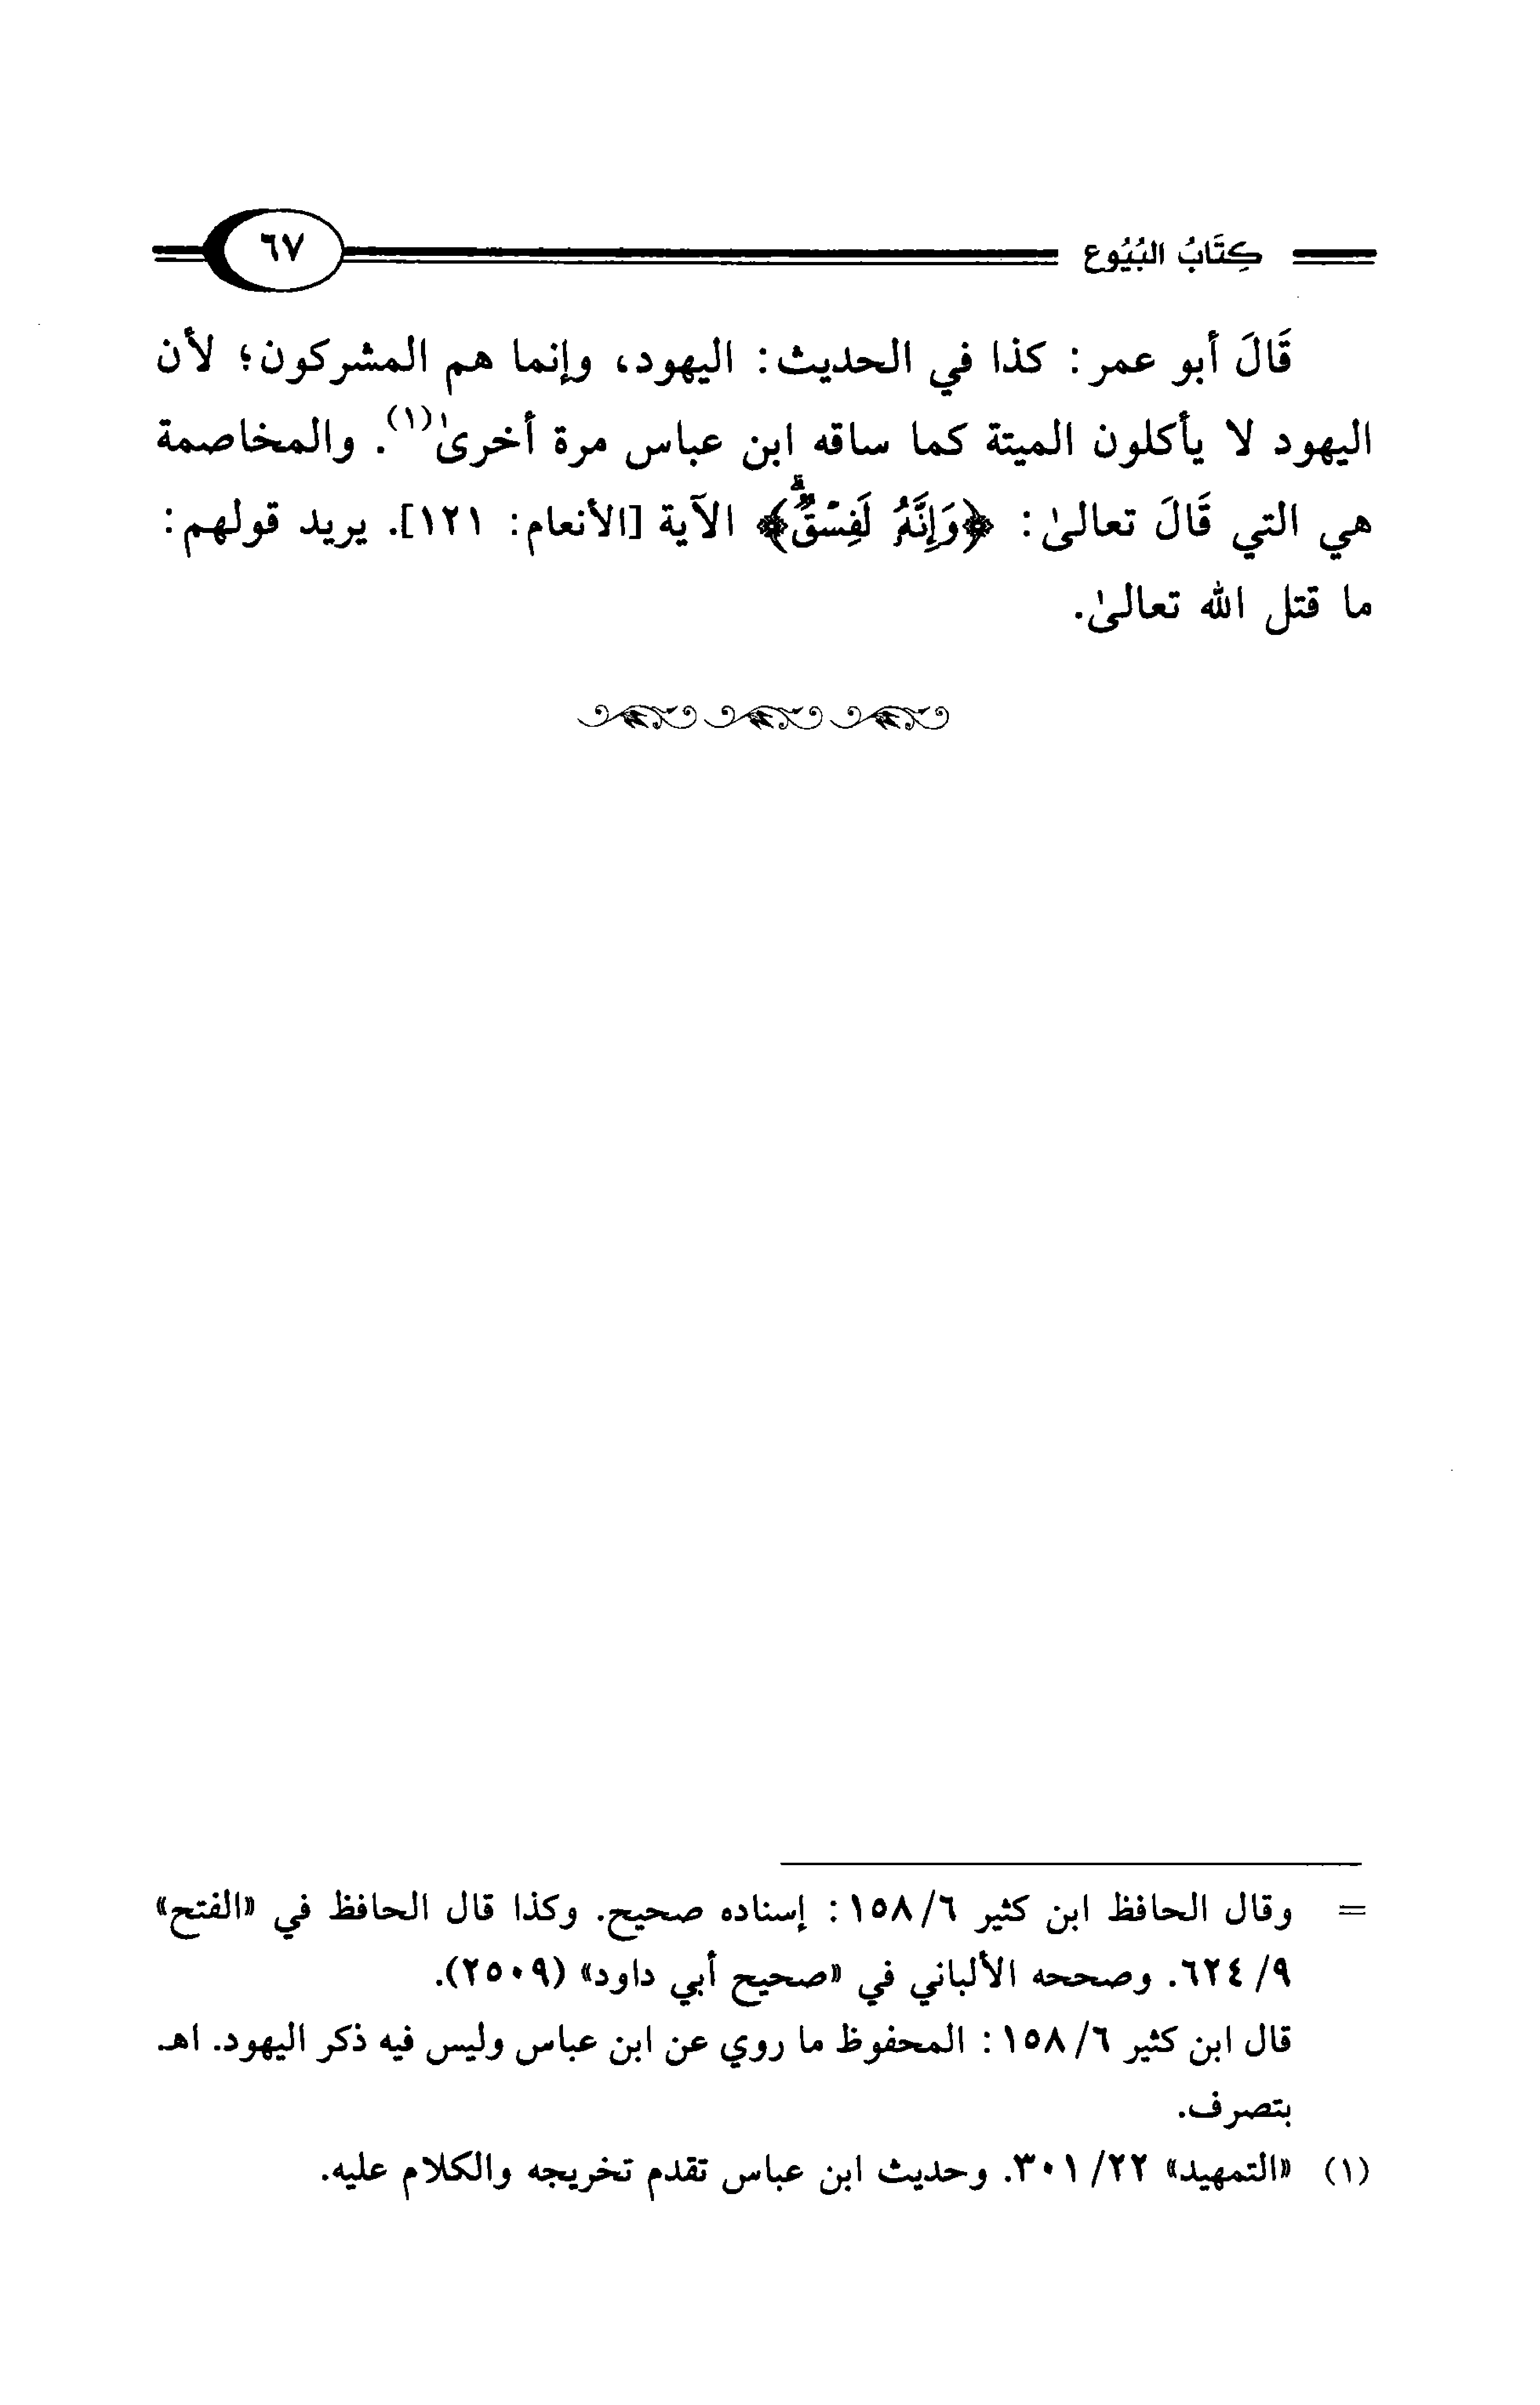 كِتَابُ البُيُوع ٦٧
قَالَ أبو عمر: كذا في الحديث: اليهود، وإنما هم المشركون؛ لأن
اليهود لا يأكلون الميتة كما ساقه ابن عباس مرة أخرىٰ(١). والمخاصمة
هي التي قَالَ تعالىٰ: ﴿وَإِنَّهُۥ لَفِسْقٌۗ﴾ الآية [الأنعام: ١٢١]. يريد قولهم:
ما قتل الله تعالىٰ.
= وقال الحافظ ابن كثير ٦/ ١٥٨: إسناده صحيح. وكذا قال الحافظ في «الفتح»
٩/ ٦٢٤. وصححه الألباني في «صحيح أبي داود» (٢٥٠٩).
قال ابن كثير ٦/ ١٥٨: المحفوظ ما روي عن ابن عباس وليس فيه ذكر اليهود. اهـ.
بتصرف.
(١) «التمهيد» ٢٢/ ٣٠١. وحديث ابن عباس تقدم تخريجه والكلام عليه.